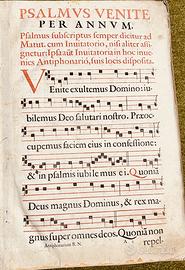 PSALMVS VENITE
PER ANNVM.
Psalmus subscriptus semper dicitur ad
Matut. cum Inuitatorio, nisi aliter assi-
gnetur: Ipsa aūt Inuitatoria in hoc inue-
nies Antiphonario, suis locis disposita.
VEnite exultemus Domino: iu-
bilemus Deo salutari nostro. Præoc-
cupemus faciem eius in confessione:
& in psalmis iubilemus ei. Quoniā
Deus magnus Dominus, & rex ma-
gnus super omnes deos. Quoniā non
Antiphonarium R. N.
repel-